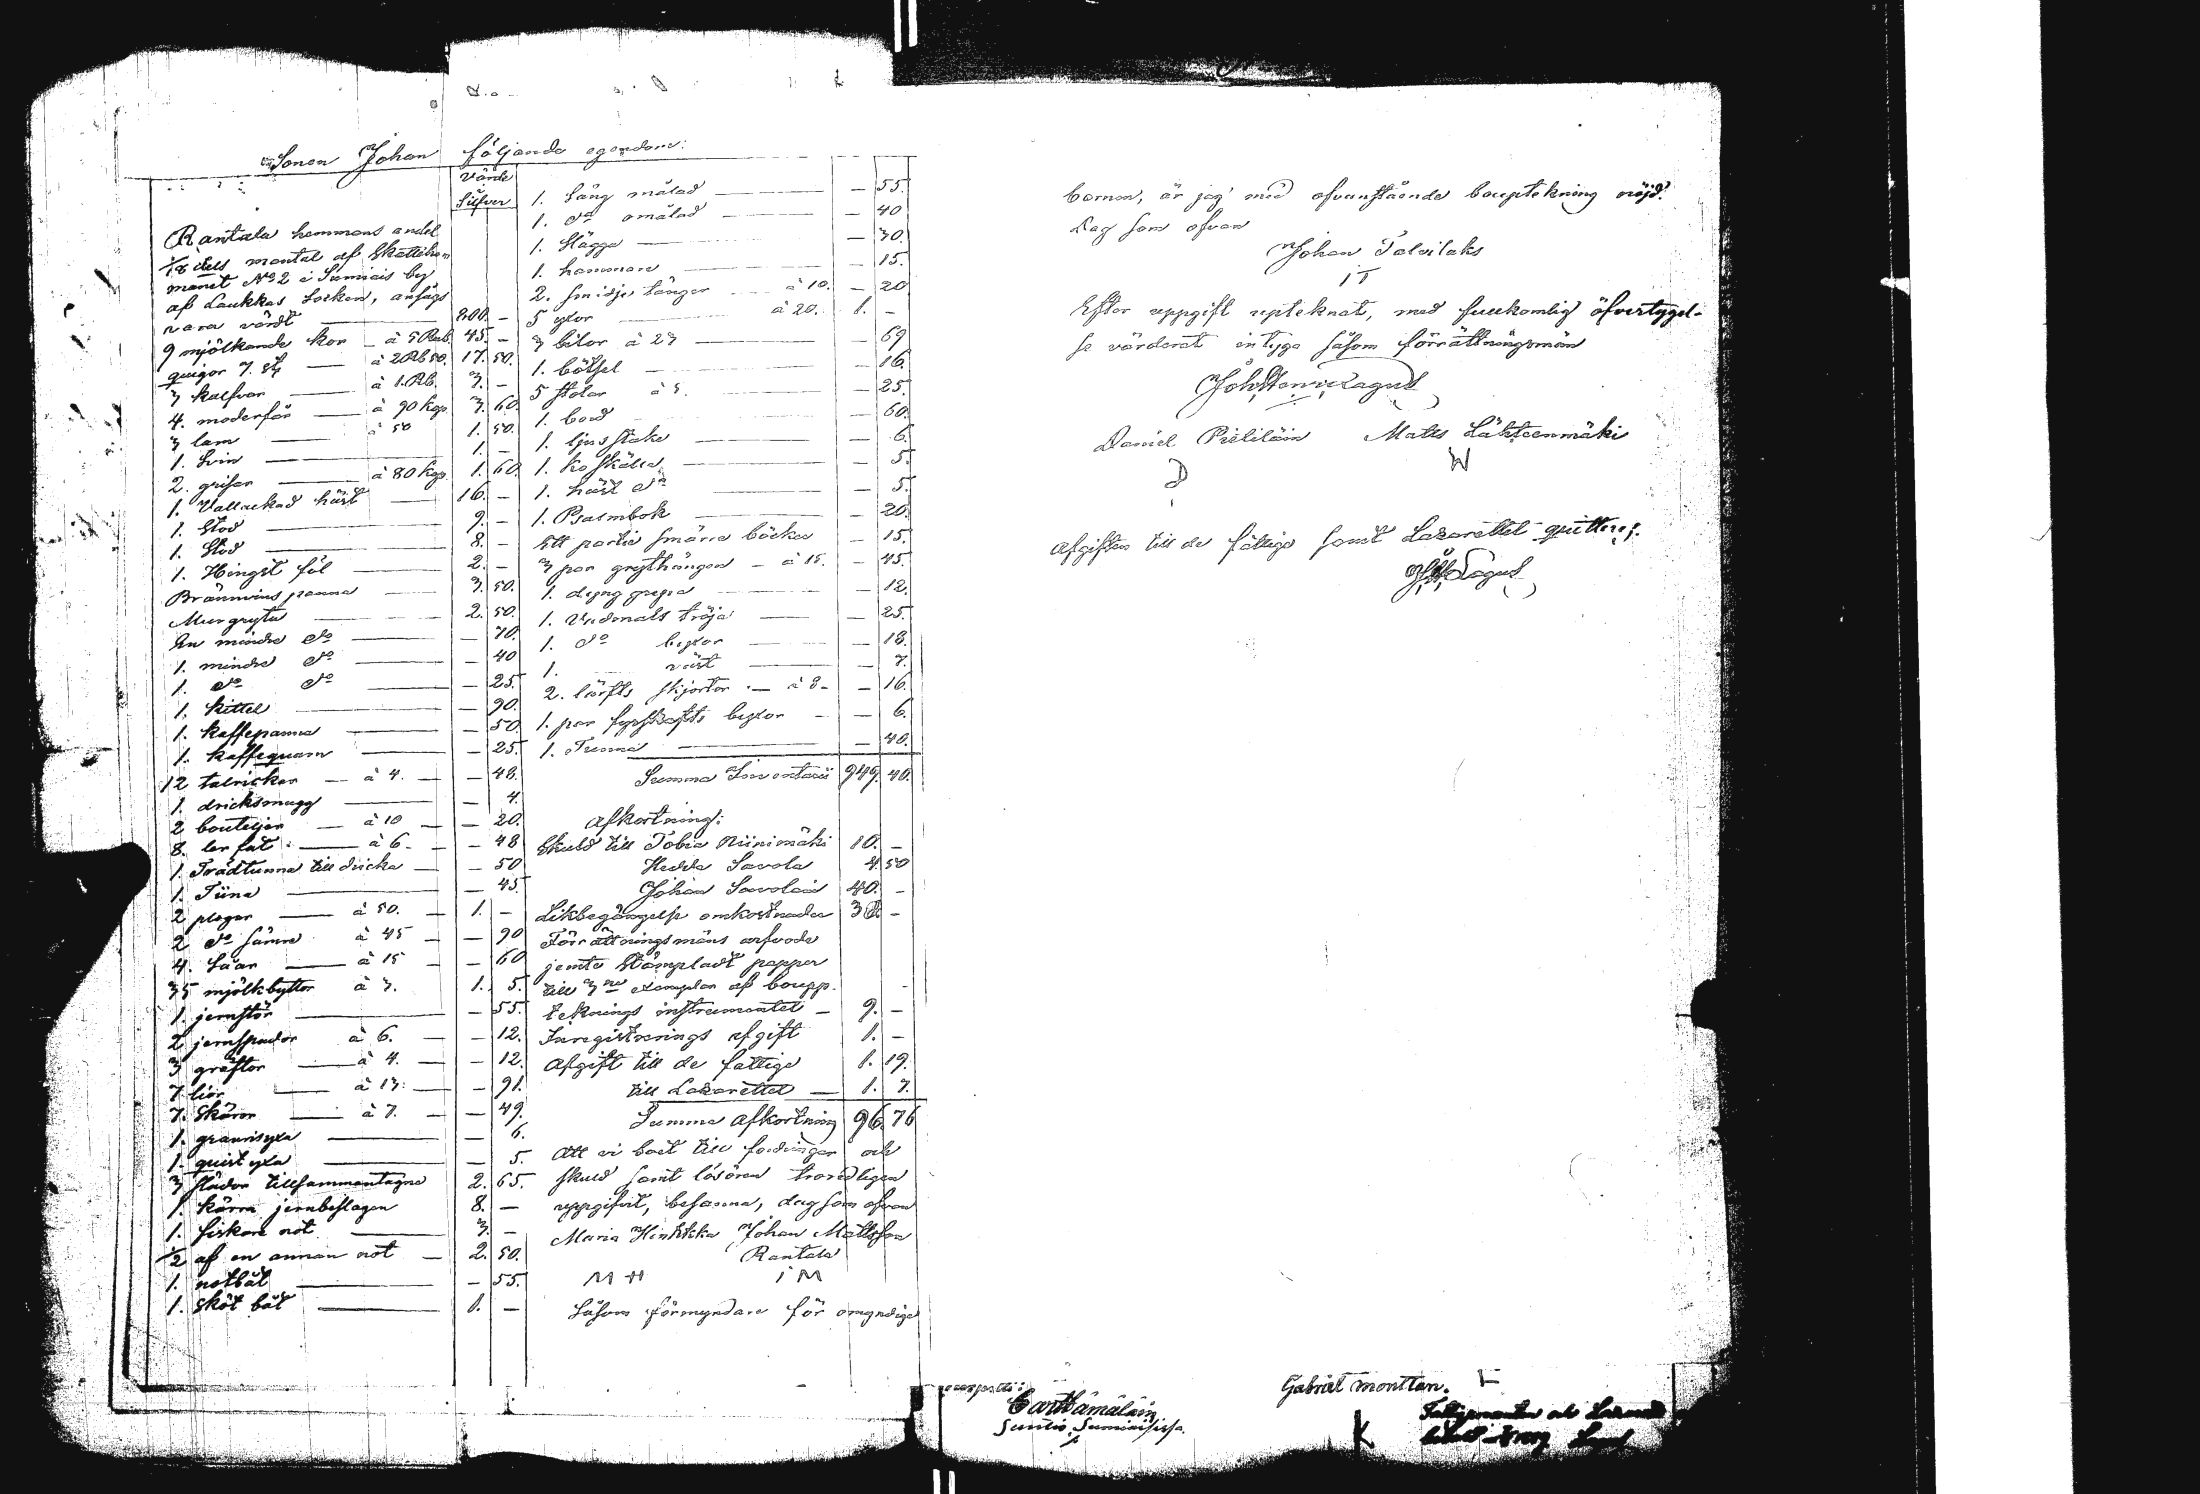 Sonen Johan följande egendom:
Värde
Silfver
Rantala hemmans andel
1/8 dels mantal af Skattehem
manet No 2 i Sumiais by
af Laukkas Socken, ansågs
vara värdt — 800. —
9 mjölkande kor — à 5 Rub. 45. —
quigor 7. st — à 2 Rb 50. 17. 50.
3 kalfvar — à 1. Rb. 3. —
4. moderfår — à 90 kop. 3. 60.
3 lam — à 50 1. 50.
1. Svin — 1. —
2. grisar — à 80 kop. 1. 60.
1. Vallackad häst — 16. —
1. Stod — 9. —
1. Stod — 8. —
1. Hingst föl — 2. —
Brännvins panna — 3. 50.
Murgryta — 2. 50.
En mindre do — — 70.
1. mindre do — — 40
1. do do — — 25.
1. Kittel — — 90.
1. kaffepanna — — 50
1. kaffequarn — — 25.
12 talrickar — à 4. — — 48.
1. dricksmugg — — 4.
2 bouteljer — à 10 — — 20.
8. ler fat — à 6. — — 48
1. Trädtunna till dricka — — 50
1. Tiina — — 45
2 plogar — à 50. — 1. —
2 do sämre à 45 — — 90
4. Såar — à 15 — — 60
35 mjölkbyttor à 3. 1. 5.
1. jernstör — — 55.
2 jernspador à 6. — — 12.
3 gräftor — à 4. — — 12.
7 liar — à 13. — — 91.
7. Skäror — à 7. — — 49.
1. — 6.
1. quist yxa — — 5.
3 slädor tillsammantagne 2. 65.
1. kärra jernbeslagen 8. —
1. fiskare not — 3. —
1/2 af en annan not — 2. 50.
1. notbåt — — 55.
1. Sköt båt — 1. —
1. Säng målad — — 55.
1. do omålad — — 40
1. Slägga — — 30.
1. hammare — — 15.
2. smidje tänger — à 10. — 20
5 yxor — à 20. 1. —
3 bilor à 23 — — 69
1. — 16.
5 stolar à 5. — 25.
1. bord — — 60.
1. ljusstake — — 6.
1. ko skälla — — 5.
1. häst do — — 5.
1. Psalmbok — — 20.
Ett partie smärre böcker — 15.
3 par grythängen — à 15. — 45.
1. dyng grepa — — 12.
1. Vadmals tröja — — 25.
1. do byxor — — 18.
1. väst — — 7.
2. lärfts skjortor — à 8 — — 16.
1. par fyrskafts byxor — — 6.
1. Tunna — — 40.
Summa Inventarii 949. 40.
Afkortning:
Skuld till Tobia Niinimäki 10. —
Hedda Savola 4. 50
Johan Savolain 40. —
Likbegängelse omkostnader 30. —
Förrättningsmäns arfvode
jemte Stämpladt papper
till 3ne exemplar af boupp.
teknings instrumentet — 9. —
Inregistrerings afgift 1. —
Afgift till de fattige 1. 19.
till Lazarettet — 1. 7.
Summa Afkortning 96. 76
Att vi boet till fordringar och
skuld samt lösören troredligen
uppgifvit, besanna, dag som ofvan
Maria Hinkkka Johan Mattsson
Rantala
M H I M
Såsom förmyndare för omyndige
barnen, är jag med ofvanstående boupptekning nöjd.
Dag som ofvan
Johan Talvilaks
I T
Efter uppgift upteknat, med fullkomlig öfvertygel-
se värderat intyga såsom förrättningsmän
Joh. Henric Lagus
Daniel Pieliläin Matts Lähteenmäki
D W
Afgiften till de fattige samt Lazarettet quitteras.
Lagus
Carl Hämäläin
Suntio Sumiaisissa.
Gabriel Monttan.
K